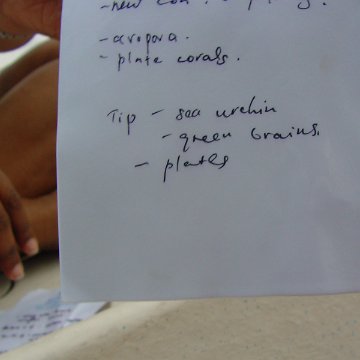 - new
- acropora.
- plate corals.
Tip - sea urchin
- green brains.
- plates